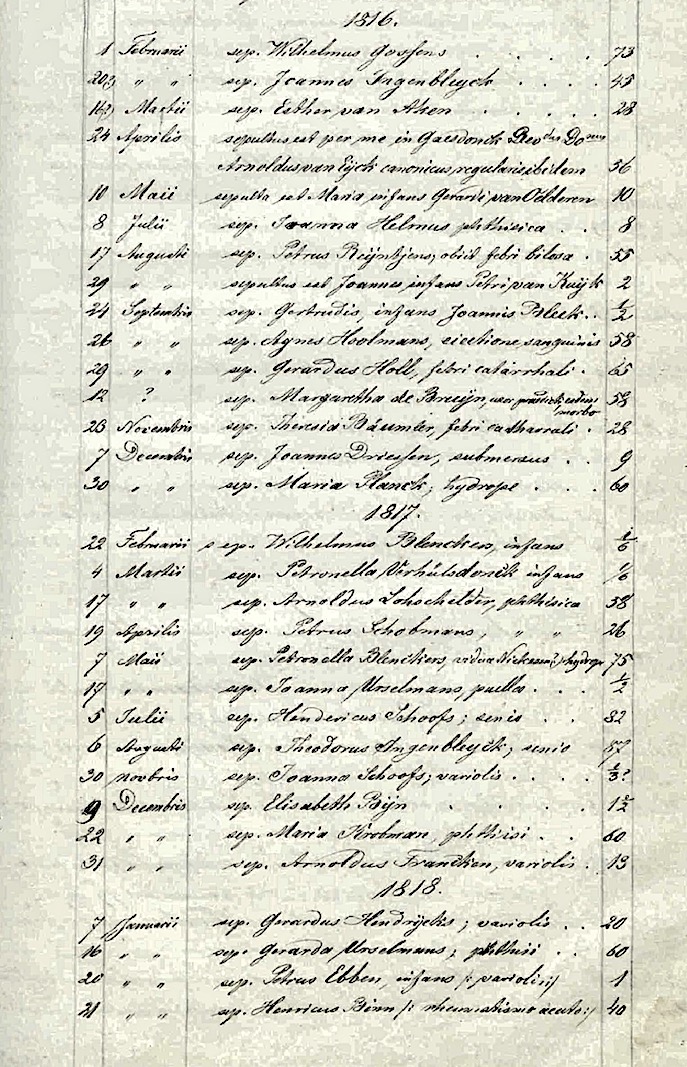 1816.
1 Februarii sep. Wilhelmus Gossens 73
20?) " " sep. Joannes Ingenbleyck 45
1(?) Martii sep. Esther van Aken 28
24 Aprilis sepultus est per me in Gaesdonck Revdus Domnus
Arnoldus van Eijck canonicus regularis ibidem 56
10 Maii sepulta est Maria infans Gerardi van Oelderen 10
8 Julii sep. Joanna Helmus phthisica 8
17 Augusti sep. Petrus Reijntjens, obiit febri bilosa 55
29 " " sepultus est Joannes infans Petri van Kuijk 2
24 Septembris sep. Gertrudis, infans Joannis Bleek 1/2
26 " " sep. Agnes Hoolmans, eiectione sanguinis 58
29 " " sep. Gerardus Holl, febri catarrhali 65
12 ? sep. Margaretha de Bruijn, uxor morbo 58
23 Novembris sep. Theresia Bäumler, febri catharrali 28
7 Decembris sep. Joannes Driessen, submersus 9
30 " " sep. Maria Planck; hydrope 60
1817.
22 Februarii sep. Wilhelmus Blenckers, infans 1/6
4 Martii sep. Petronella Verhülsdonck infans 1/6
17 " " sep. Arnoldus Lohschelder, phthisica 38
19 Aprilis sep. Petrus Schobmans, " " 26
7 Maii sep. Petronella Blenckers, vidua (?) hydrope 75
17 " " sep. Joanna Urselmans, puella 1/2
5 Julii sep. Hendericus Schoofs; senio 82
6 Augusti sep. Theodorus Ingenbleyck; senio 87
30 novbris sep. Joanna Schoofs; variolis 1/3?
9 Decembris sep. Elisabeth Bijn 1 1/2
22 " " sep. Maria Krobman, phthisi 60
31 " " sep. Arnoldus Francken, variolis 13
1818.
7 Januarii sep. Gerardus Hendrijcks; variolis 20
16 " " sep. Gerarda Urselmans; phthisi 60
20 " " sep. Petrus Ebben, infans /: variolis :/ 1
21 " " sep. Henricus Binn /: rheumatismo acuto :/ 40